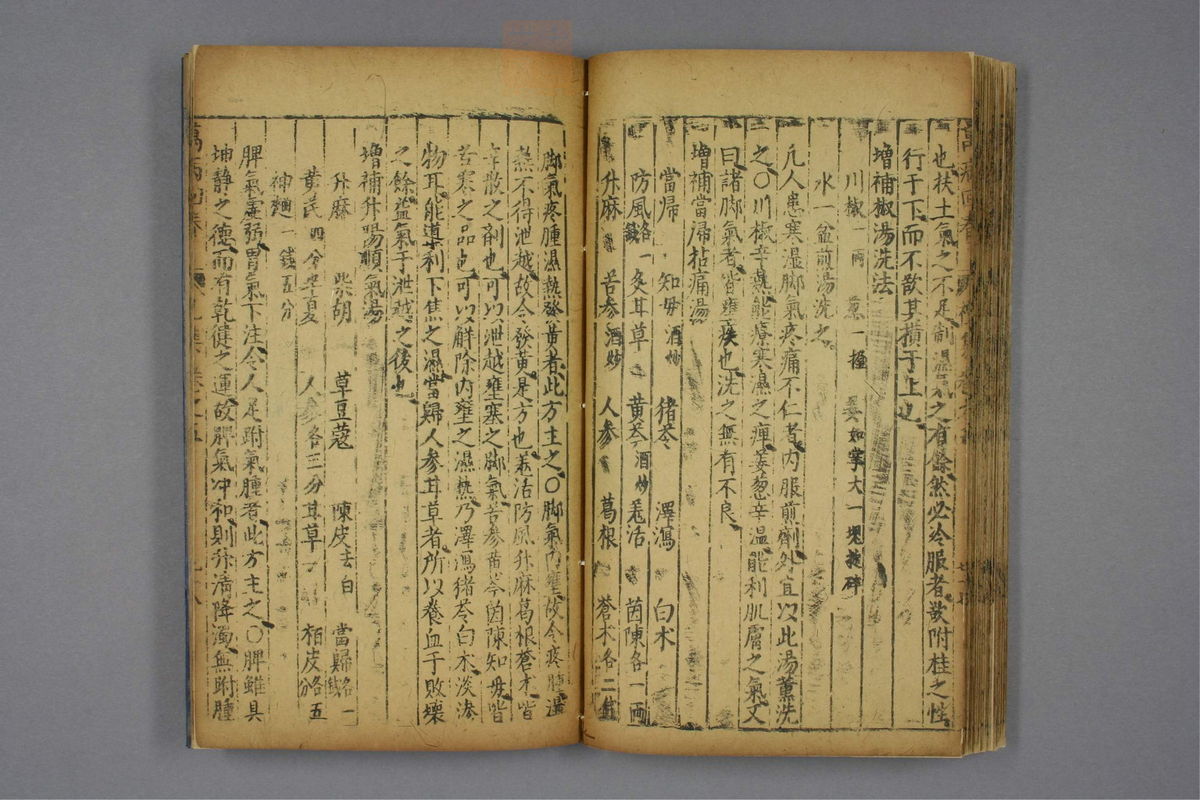 也扶土氣之不足制濕氣之有餘然必冷服者欲附桂之性
行于下而不欲其橫于上也
增補椒湯洗法
川椒一兩 葱一握 姜如掌大一塊搥碎
水一盆煎湯洗之
凡人患寒濕脚氣疼痛不仁者內服煎劑外宜以此湯薰洗
之〇川椒辛熱能療寒濕之痺姜葱辛温能利肌膚之氣又
曰諸脚氣者皆壅疾也洗之無有不良
增補當歸拈痛湯
當歸 知母酒炒 猪苓 澤瀉 白朮
防風各一錢 炙甘草 黃芩酒炒 羌活 茵陳各一兩
升麻 苦參酒炒 人參 葛根 蒼朮各二錢
脚氣疼腫濕熱發黃者此方主之〇脚氣內壅故令疼腫濕
熱不得泄越故令發黃是方也羌活防風升麻葛根蒼朮皆
辛散之劑也可以泄越壅塞之脚氣苦參黃芩茵陳知母皆
苦寒之品也可以解除內壅之濕熱乃澤瀉猪苓白朮淡滲
物耳能導利下焦之濕當歸人參甘草者所以養血于敗壞
之餘益氣于泄越之後也
增補升陽順氣湯
升麻 柴胡 草豆蔻 陳皮去白 當歸各一錢
黃芪四分 半夏 人參各三分 甘草 柏皮各五分
神麯一錢五分
脾氣虛弱胃氣下注令人足跗氣腫者此方主之〇脾雖具
坤靜之德而有乾健之運故脾氣冲和則升清降濁無跗腫